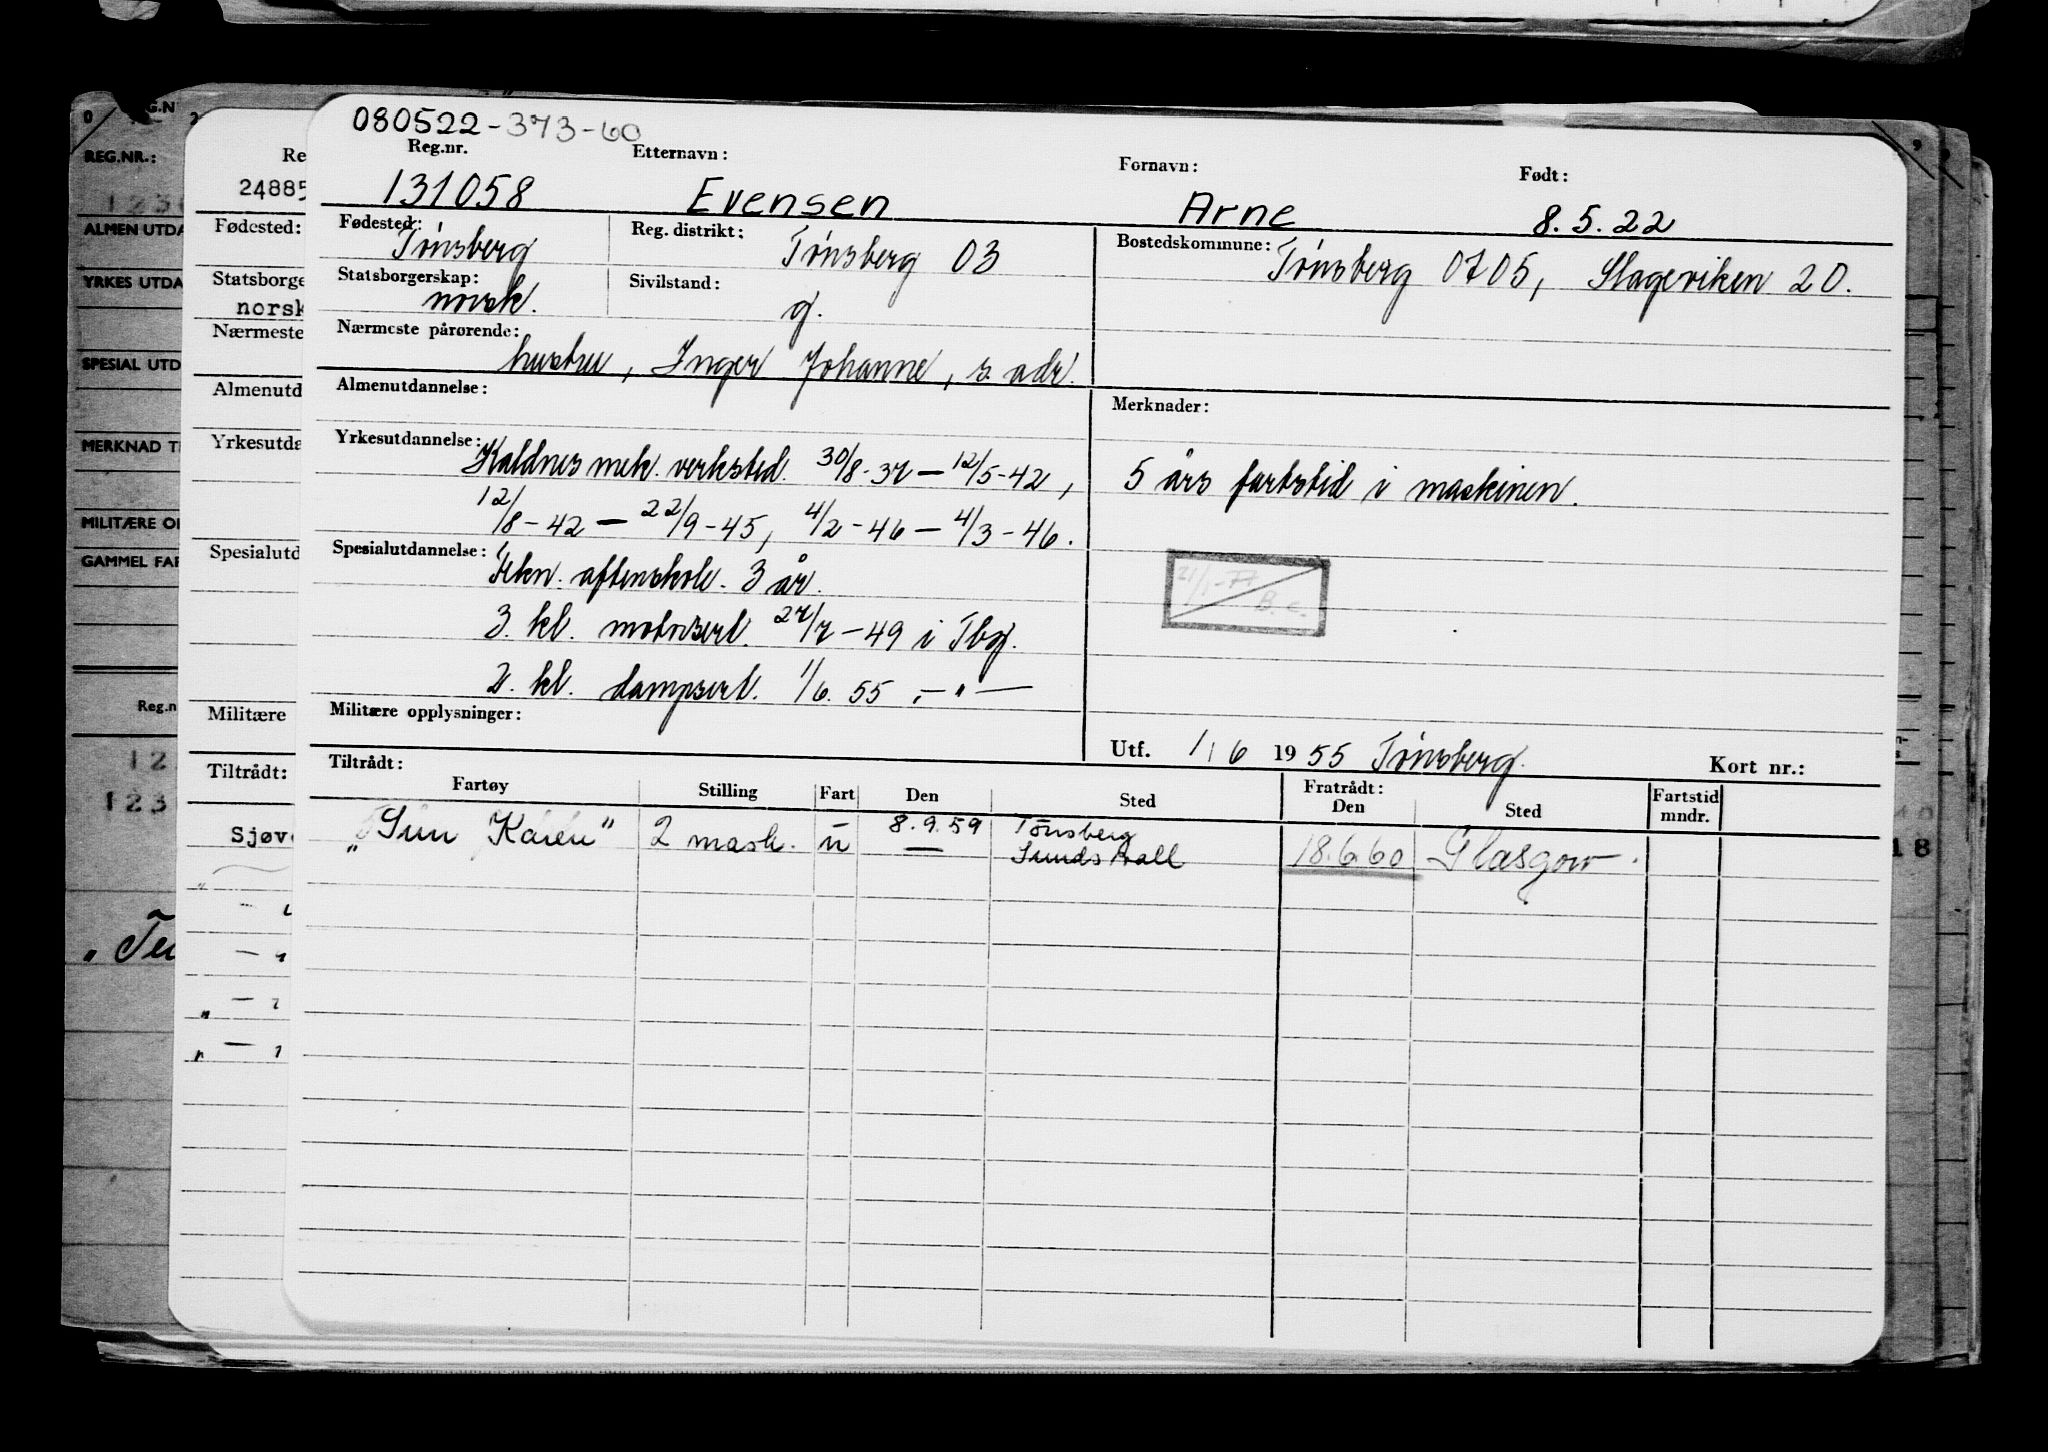 080522-373-60
Reg.nr. Etternavn: Fornavn: Født:
131058 Evensen Arne 8.5.22
Fødested: Tønsberg Reg. distrikt: Tønsberg 03 Bostedskommune: Tønsberg 0705, Slageviken 20.
Statsborgerskap: norsk. Sivilstand: g.
Nærmeste pårørende: hustru, Inger Johanne, s. adr.
Almenutdannelse: Merknader:
Yrkesutdannelse: Kaldnes mek. verksted. 30/8-37 — 12/5-42,
12/8-42 — 22/9-45, 4/2-46 — 4/3-46.
5 års fartstid i maskinen.
Spesialutdannelse: Tekn. aftenskole. 3 år.
3. kl. motorsert. 27/7-49 i Tbg.
2. kl. dampsert. 1/6. 55 ,-"-
21/1-77
B. C.
Militære opplysninger:
Utf. 1/6 1955 Tønsberg. Kort nr.:
Tiltrådt: Fratrådt:
Fartøy Stilling Fart Den Sted Den Sted Fartstid mndr.
"Sun Karen" 2 mask. u 8.9.59 Tønsberg 18.6.60 Glasgow.
—
REG.NR.:
ALMEN UTDA
YRKES UTDA
SPESIAL UTD
MERKNAD T
MILITÆRE O
GAMMEL FAR
Reg.n
12
123
"Te
Re
24885
Fødested:
Statsborge
norsk
Nærmeste
Almenutd
Yrkesutda
Spesialutd
Militære
Tiltrådt:
Sjøv
18